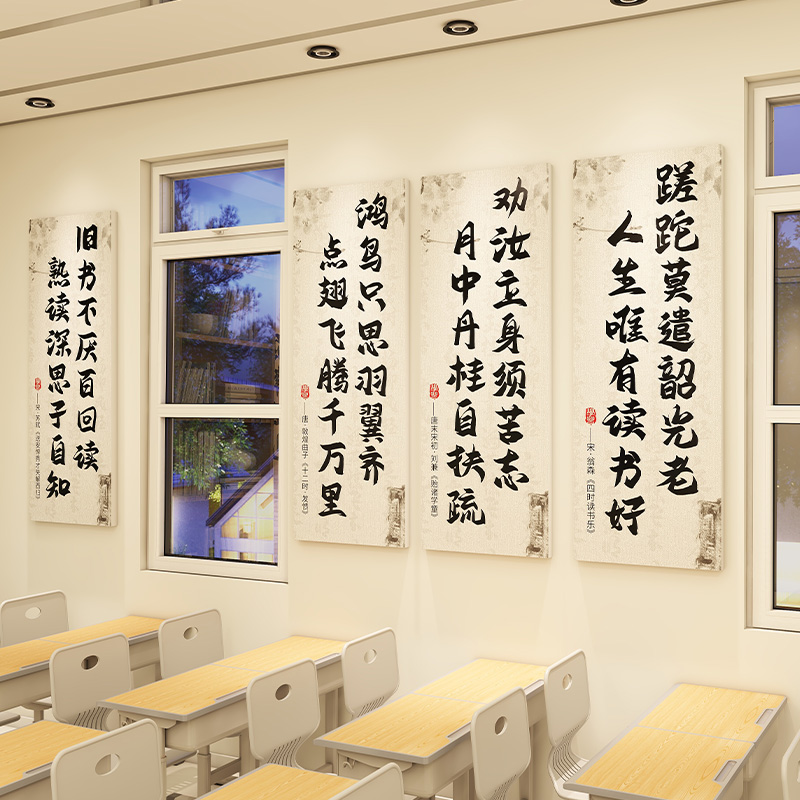 旧书不厌百回读
熟读深思子自知
——宋·苏轼《送安惇秀才失解西归》
鸿鸟只思羽翼齐
点翅飞腾千万里
——唐·敦煌曲子《十二时·发愤》
劝汝立身须苦志
月中丹桂自扶疏
——唐末宋初·刘兼《贻诸学童》
蹉跎莫遣韶光老
人生唯有读书好
——宋·翁森《四时读书乐》